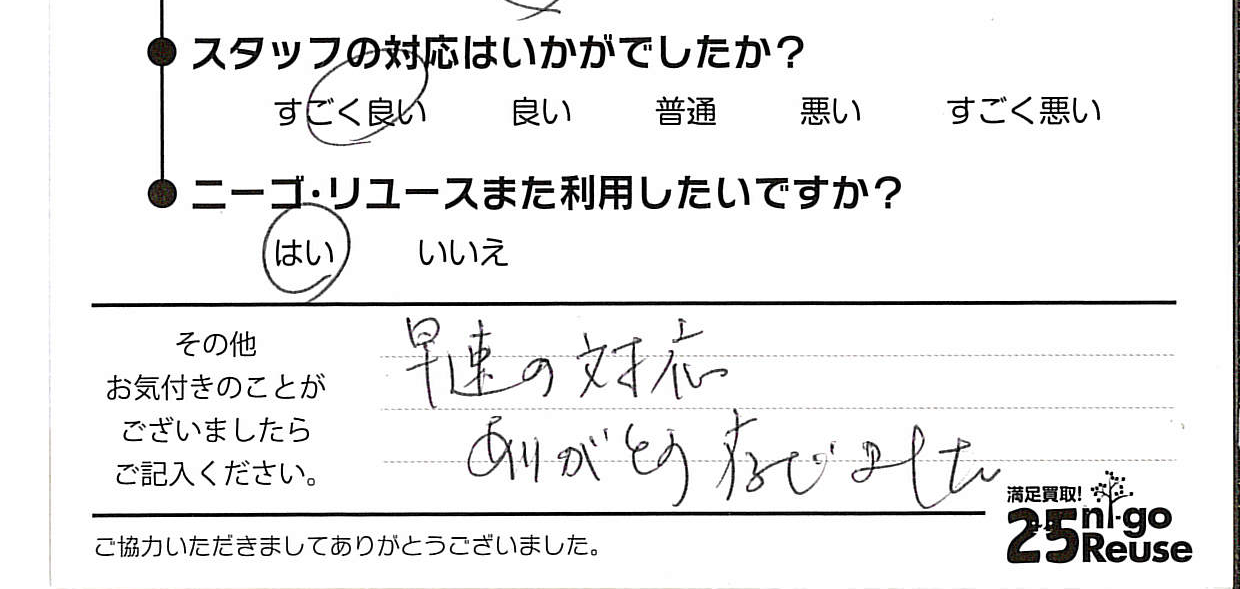 スタッフの対応はいかがでしたか？
すごく良い 良い 普通 悪い すごく悪い
ニーゴ・リユースまた利用したいですか？
はい いいえ
その他
お気付きのことが
ございましたら
ご記入ください。
早速の対応
ありがとう存じました
満足買取!
25 ni-go
Reuse
ご協力いただきましてありがとうございました。